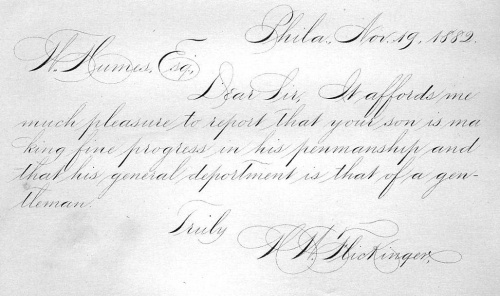 Phila., Nov. 19, 1882.
W. Humes, Esq,
Dear Sir, It affords me
much pleasure to report that your son is ma
king fine progress in his penmanship and
that his general deportment is that of a gen-
tleman.
Truly
H. W. Flickinger.